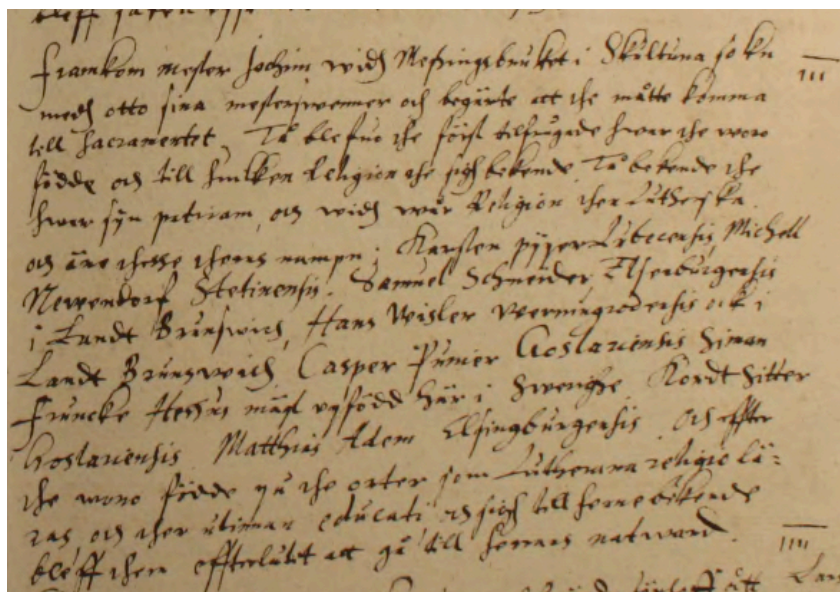 Framkom mester Jochim widh Messingsbruket i Skultuna sokn
medh otto sina mesterswenner och begärte att the måtte komma
till Sacramentet. Tå blefwo the först tilfrågade hwar the woro
födde och till huilken Religion the sigh bekende Tå bekende the
hwar syn patriam, och widh wår Religion then Lutherska.
och äre thesse thems nampn: Karsten pyper Lubecensis, Michell
Newendorf Stetinensis. Samuel Schneider, Elsenburgensis
i Landt Brunswich, Hans Wisler werningrodensis ock i
Landt Brunswich, Casper Pumer Goslariensis Siman
Francke Hessus mäst upfödd här i Swerighe Kordt Sitter
Goslariensis Matthias Adem Elsingburgensis och effter
the woro födde på the orter som Lutherana religio lä-
ras och ther utinnan educati och sigh till henne bekende
bleff them effterlåtet att gå till herrans natward.
III
IIII